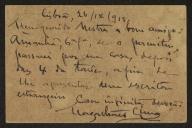 Lisboa, 24/IX/915
Meu querido Mestre e bom amigo
Amanhã, 6ª f., se o permitir,
passarei por sua casa, depois
das 4 da tarde, a fim de
lhe apresentar um escritor
estrangeiro. Com infinita
Magalhães Lima